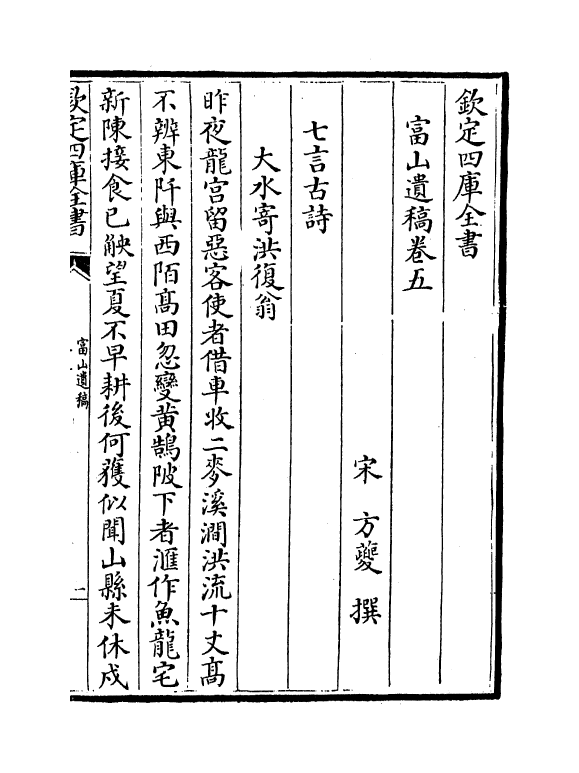 欽定四庫全書
富山遺稿卷五
宋　方夔　撰
七言古詩
大水寄洪復翁
昨夜龍宫留惡客使者借車收二麥溪澗洪流十丈髙
不辨東阡與西陌髙田忽變黄鵠陂下者滙作魚龍宅
新陳接食已觖望夏不早耕後何獲似聞山縣未休戍
欽定四庫全書
富山遺稿